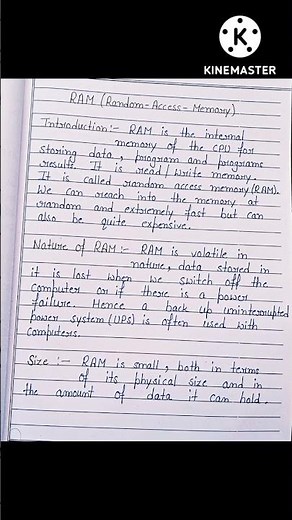 KINEMASTER
RAM (Random-Access-Memory)
Introduction:- RAM is the internal
memory of the CPU for
storing data, program and programs
results. It is read/write memory.
It is called random access memory(RAM).
We can reach into the memory at
random and extremely fast but can
also be quite expensive.
Nature of RAM:- RAM is volatile in
nature, data stored in
it is lost when we switch off the
computer or if there is a power
failure. Hence a back up uninterrupted
power system (UPS) is often used with
computers.
Size :- RAM is small, both in terms
of its physical size and in
the amount of data it can hold.